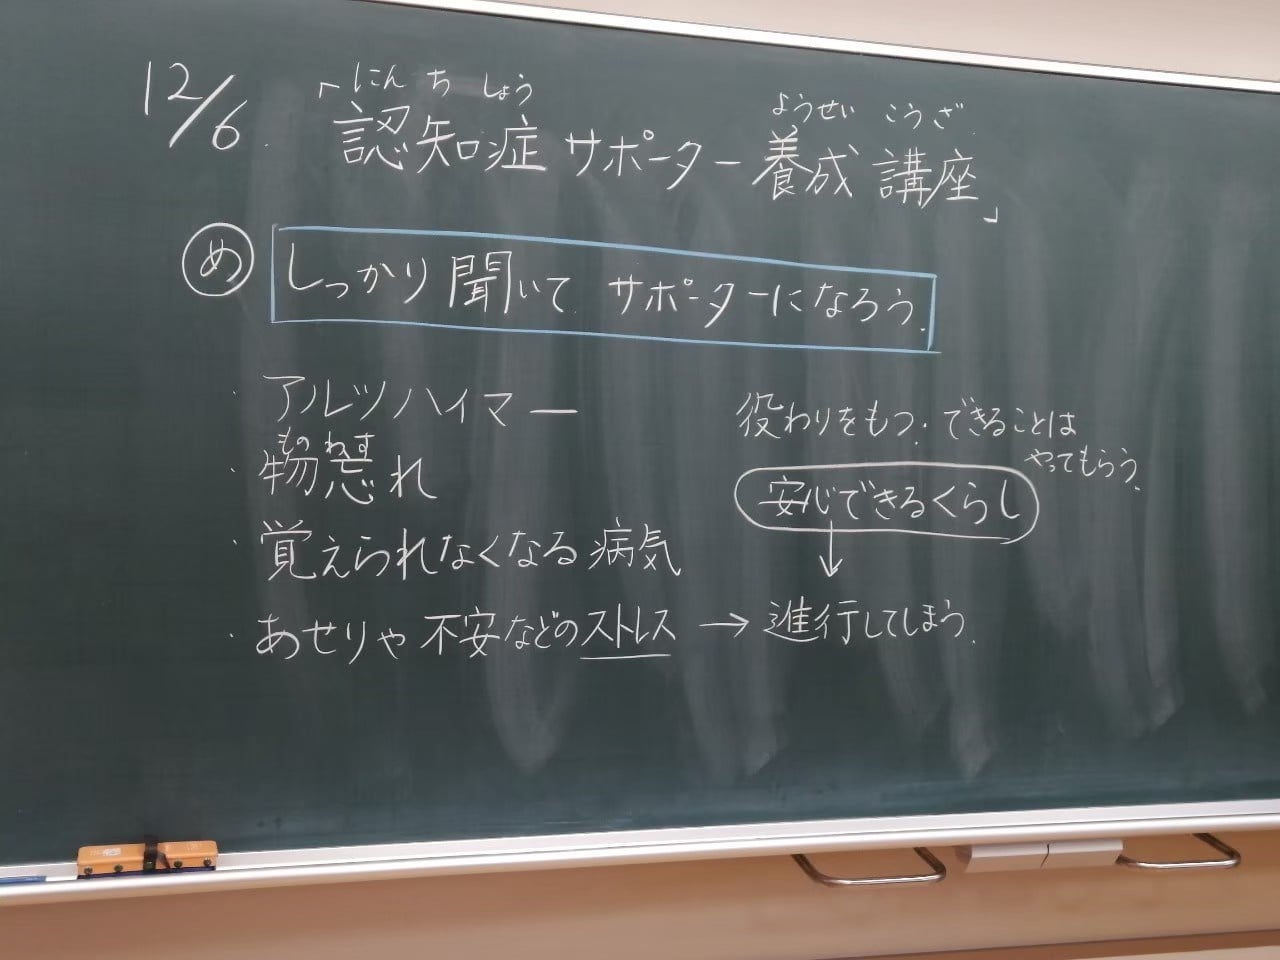 12/6.
にん ち しょう
ようせい こうざ
「認知症サポーター養成講座」
め
しっかり聞いて サポーターになろう.
・アルツハイマー
もの わす
・物忘れ
・覚えられなくなる病気
・あせりや不安などのストレス → 進行してしまう.
役わりをもつ・できることは
やってもらう.
安心できるくらし
↓